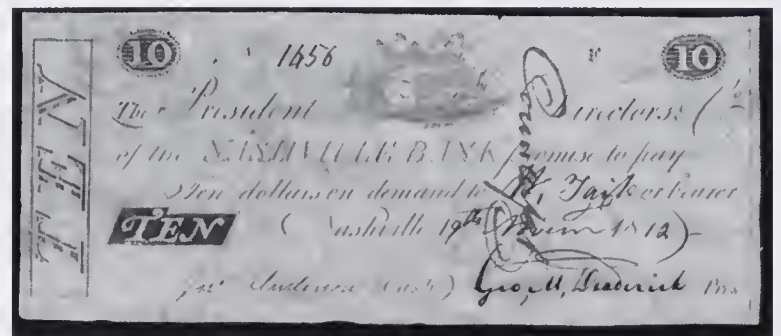 10 1656 10
TEN
The President Directors &
of the NASHVILLE BANK promise to pay
Ten dollars on demand to W, Tait or bearer
TEN Nashville 19th 1812
Counterfeit
Cash) Geo, M, Deaderick Pres